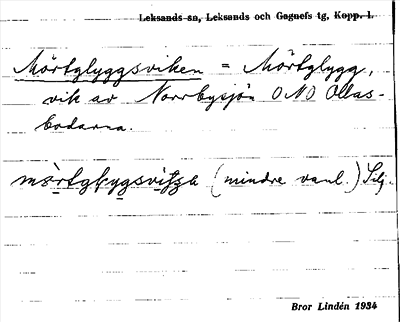 Leksands sn, Leksands och Gagnefs tg, Kopp. l.
Mörtglyggsviken = Mörtglygg,
vik av Norrbysjön ONO Ollas-
bodarna.
(mindre vanl.) Silj.
Bror Lindén 1934